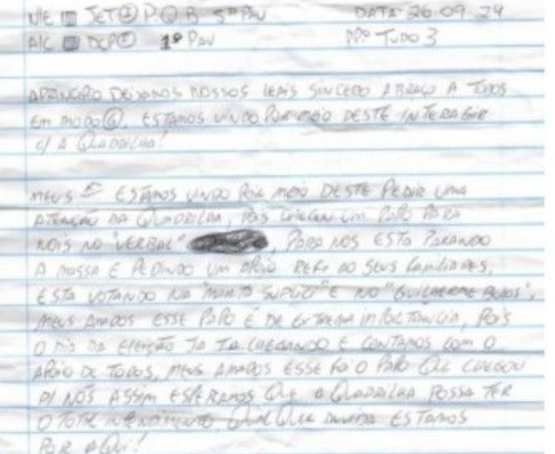 DATA 26.09.24
1º PAV
PPº TUDO 3
A PRINCÍPIO DEIXAMOS NOSSOS LEAIS SINCERO ABRAÇO A TODOS
EM MODO G, ESTAMOS VINDO POR MEIO DESTE INTERAGIR
C/ A QUADRILHA!
MEUS ESTAMOS VINDO POR MEIO DESTE PEDIR UMA
ATENÇÃO DA QUADRILHA, POIS CHEGOU UM PAPO PARA
NOIS NO "VERBAL" , PARA NOS ESTA PARANDO
A MASSA E PEDINDO UM APOIO REF. AO SEUS FAMILIARES,
ESTA VOTANDO NA "MARTA SUPLICI" E NO "GUILHERME BULOS",
MEUS AMADOS ESSE PAPO É DE EXTREMA IMPORTANCIA, POIS
O DIA DA ELEIÇÃO JA TA CHEGANDO E CONTAMOS COM O
APOIO DE TODOS, MEUS AMADOS ESSE FOI O PAPO QUE CHEGOU
P/ NÓS ASSIM ESPERAMOS QUE A QUADRILHA POSSA TER
O TOTAL INTENDIMENTO, QUALQUE DUVIDA ESTAMOS
POR AQUI!